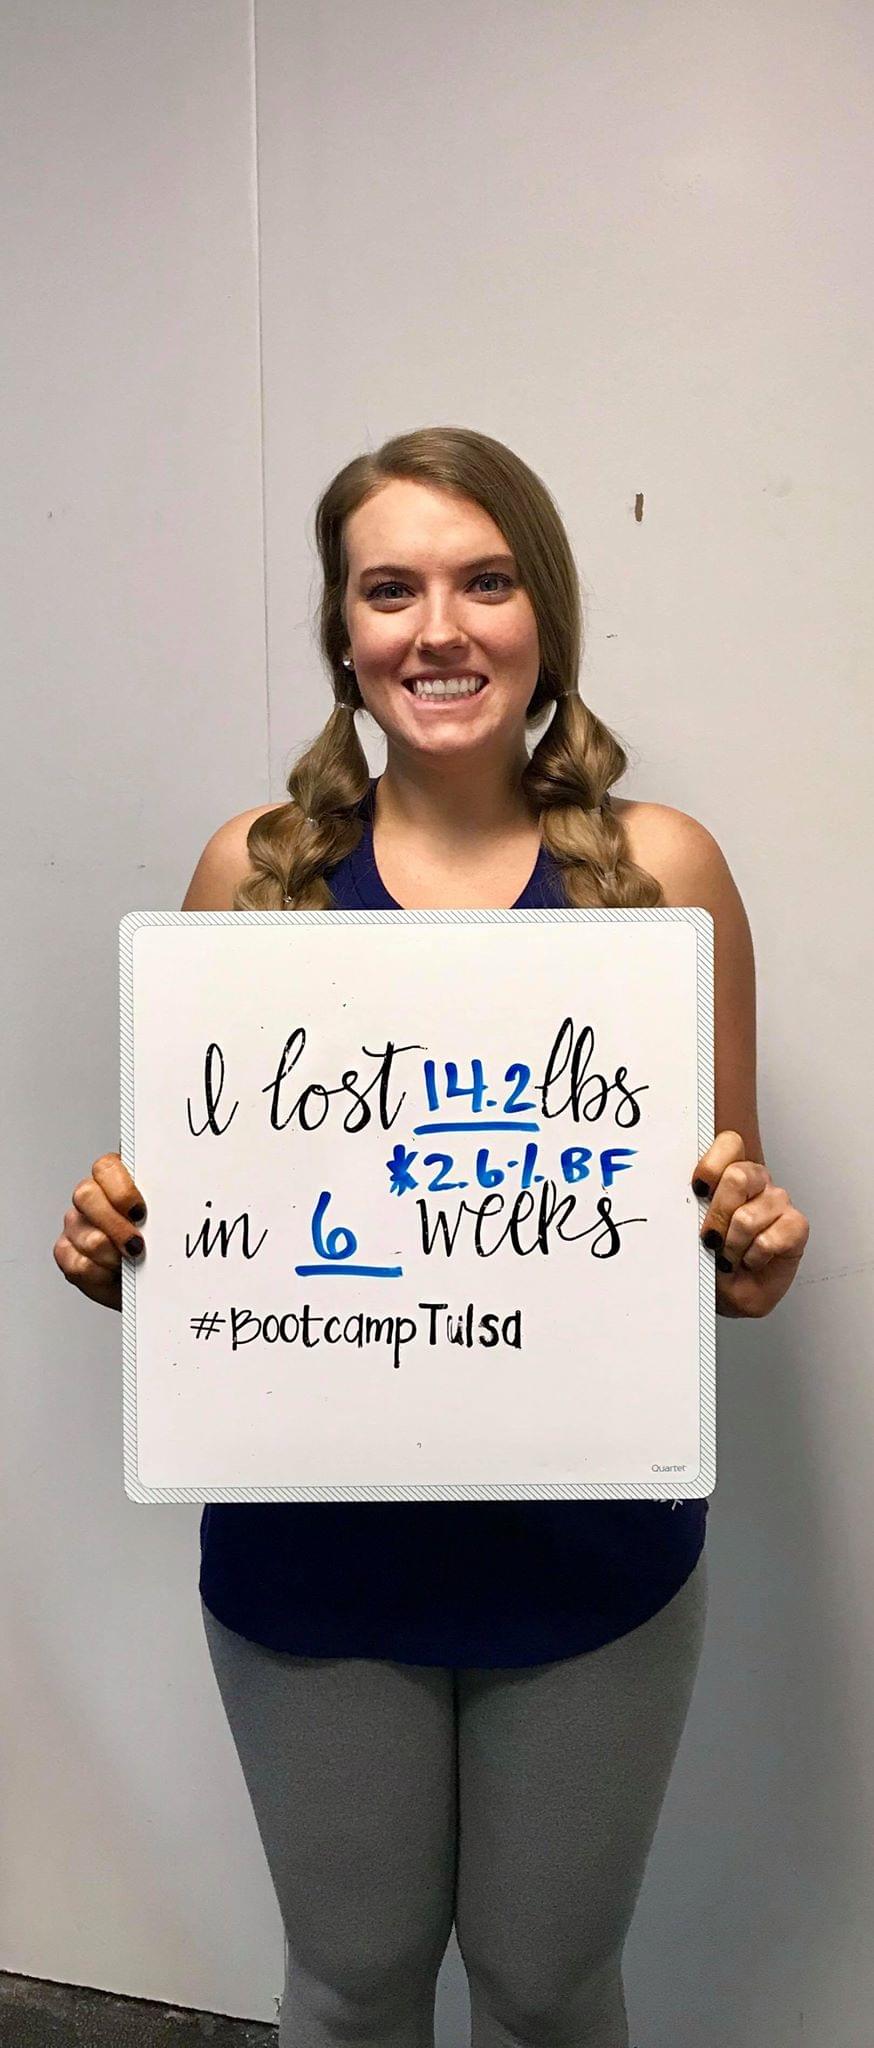 I lost 14.2 lbs
*2.6% BF
in 6 weeks
#BootcampTulsa
Quartet